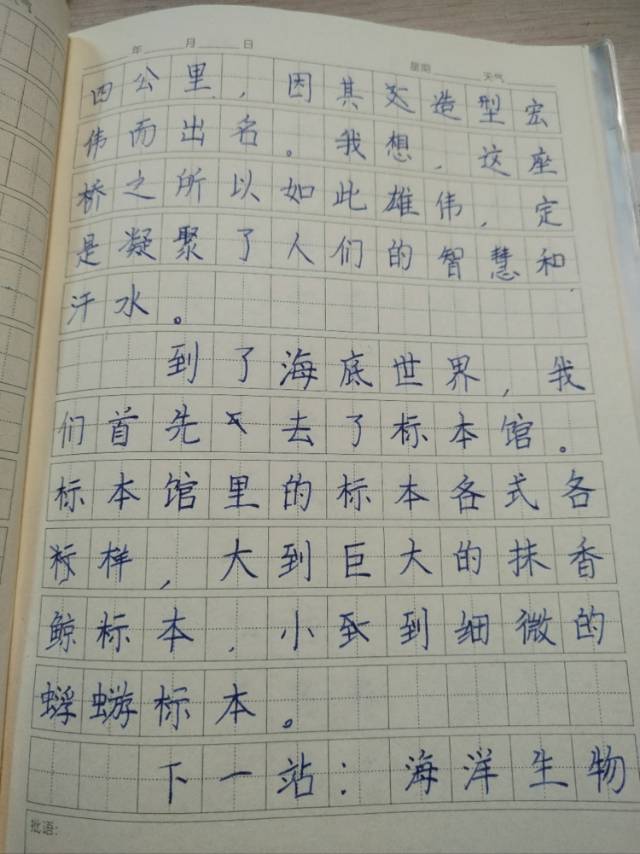 年 月 日
星期 天气
四公里，因其造型宏
伟而出名。我想，这座
桥之所以如此雄伟，定
是凝聚了人们的智慧和
汗水。
到了海底世界，我
们首先去了标本馆。
标本馆里的标本各式各
样，大到巨大的抹香
鲸标本，小到细微的
蜉蝣标本。
下一站：海洋生物
批语：